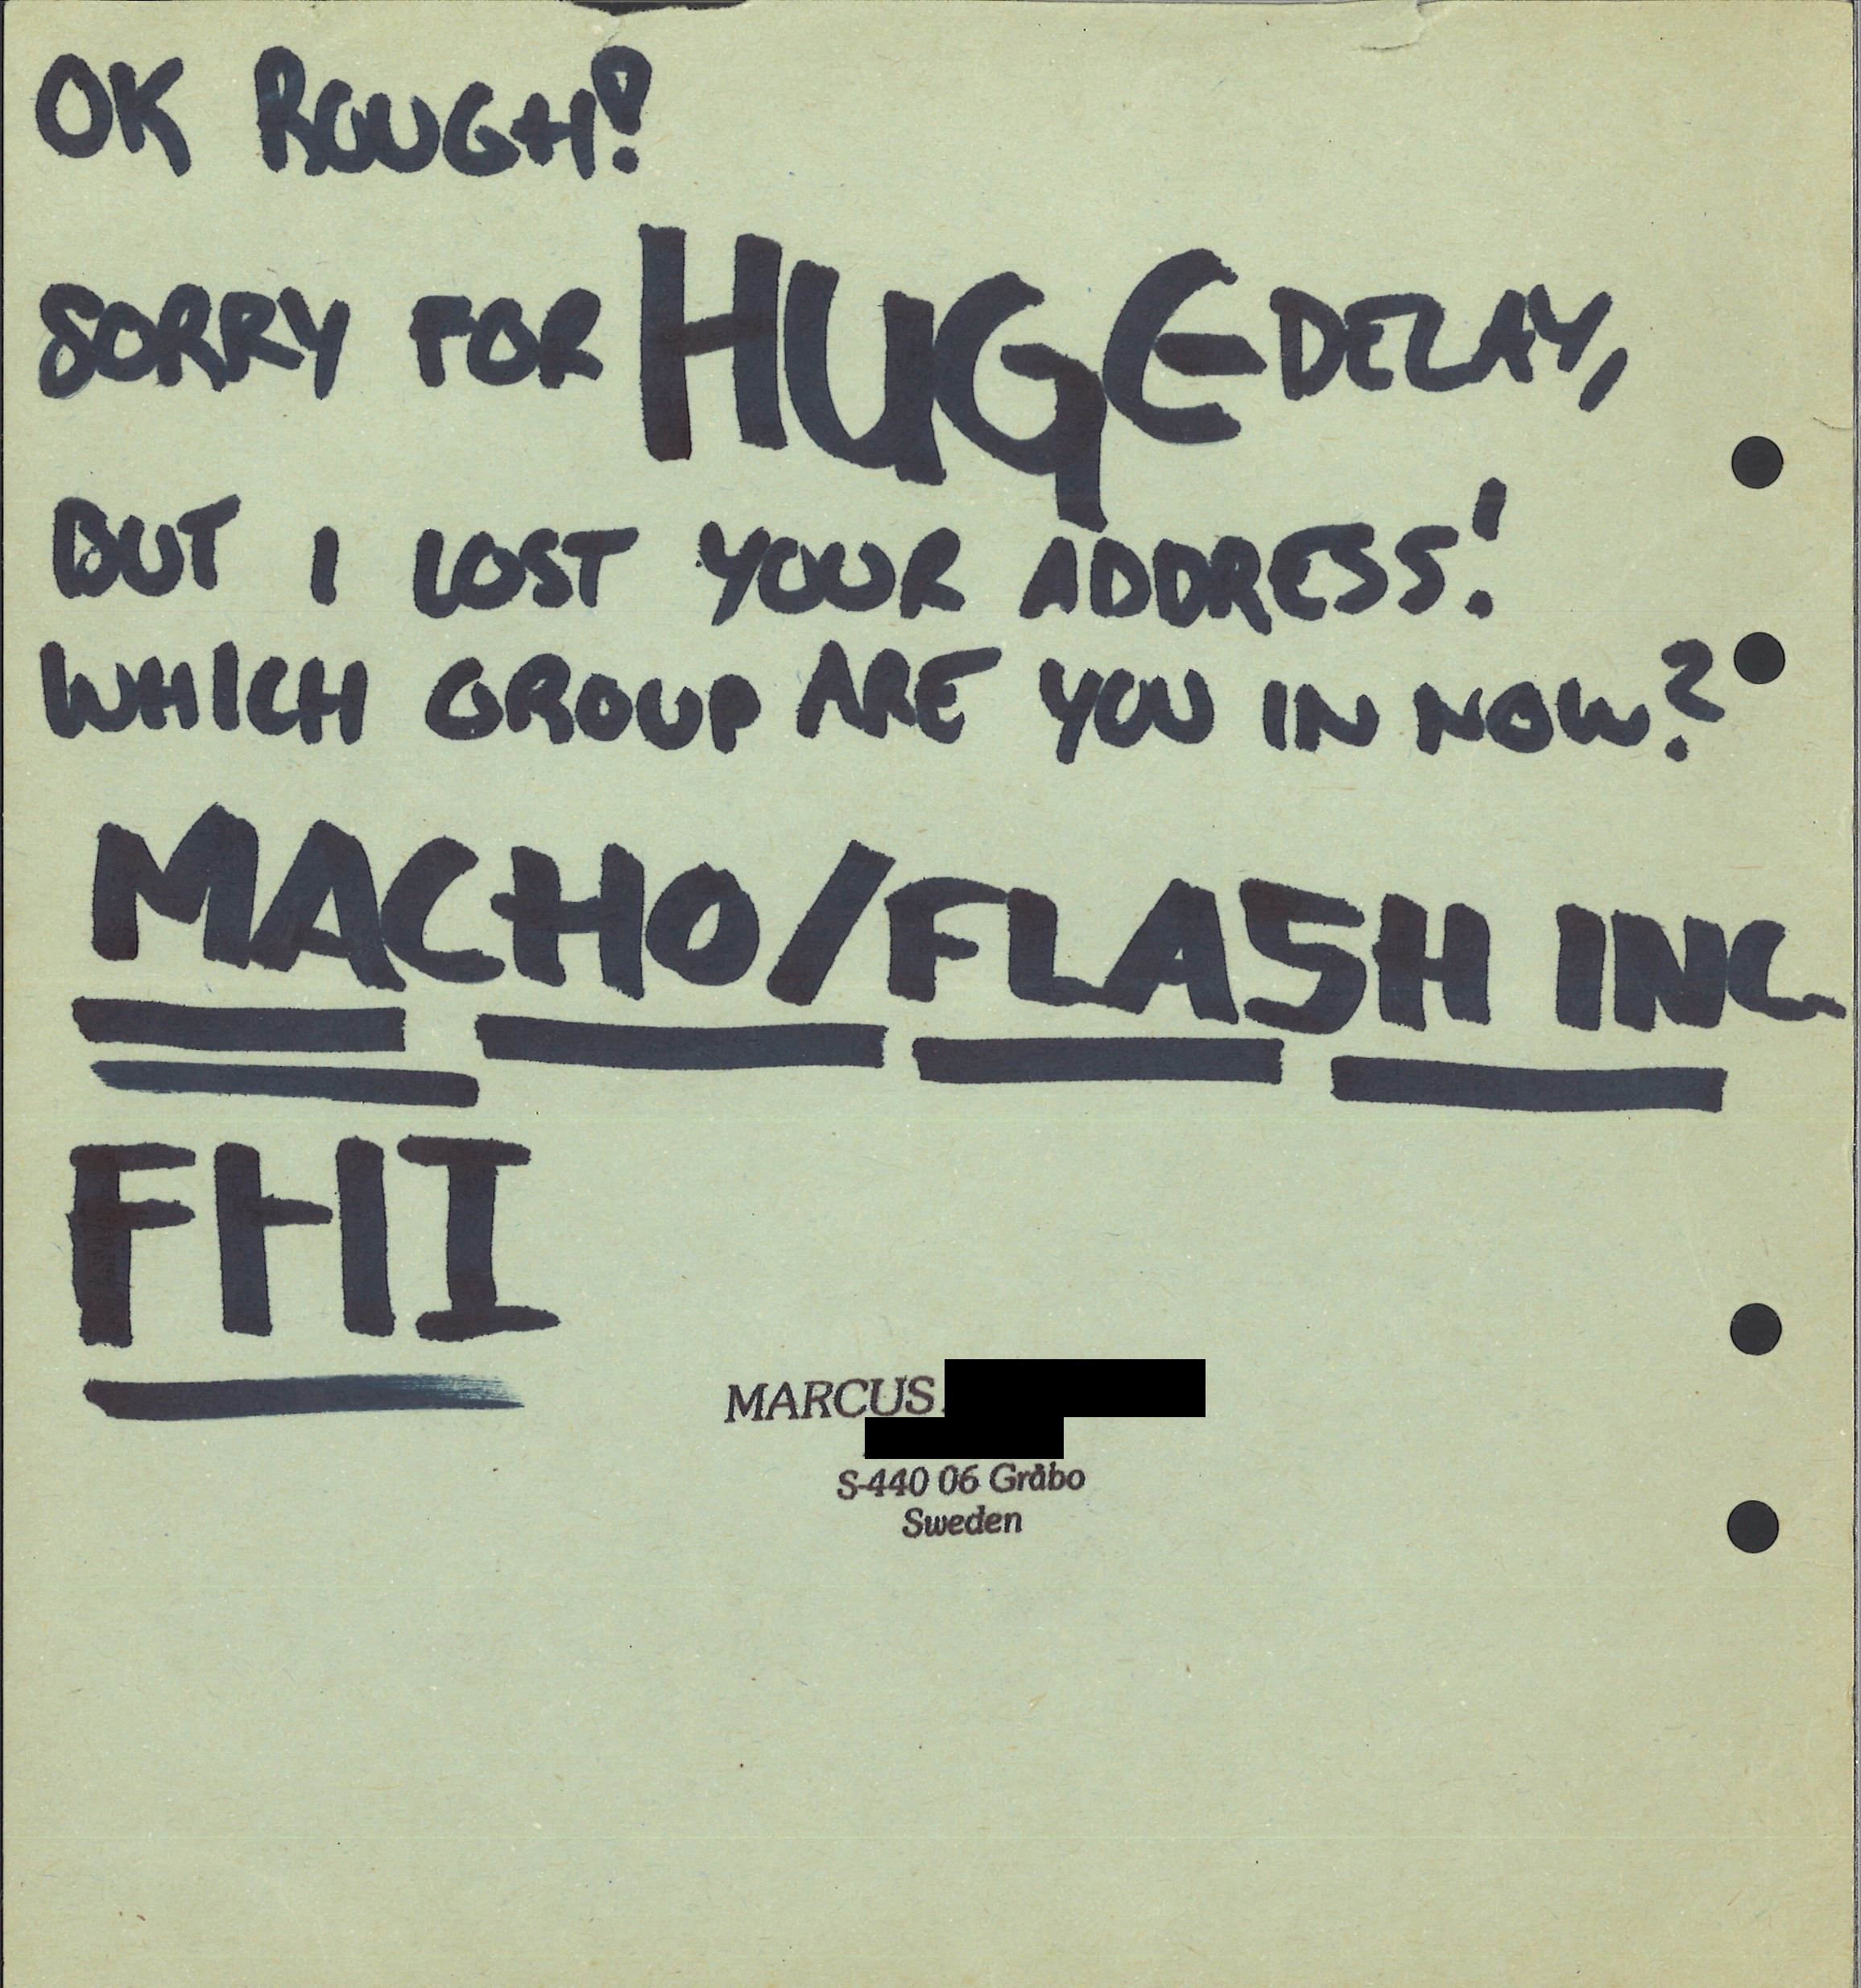 OK ROUGH!
SORRY FOR HUGE DELAY,
BUT I LOST YOUR ADDRESS!
WHICH GROUP ARE YOU IN NOW?
MACHO/FLASH INC.
FHI
MARCUS
S-440 06 Gråbo
Sweden